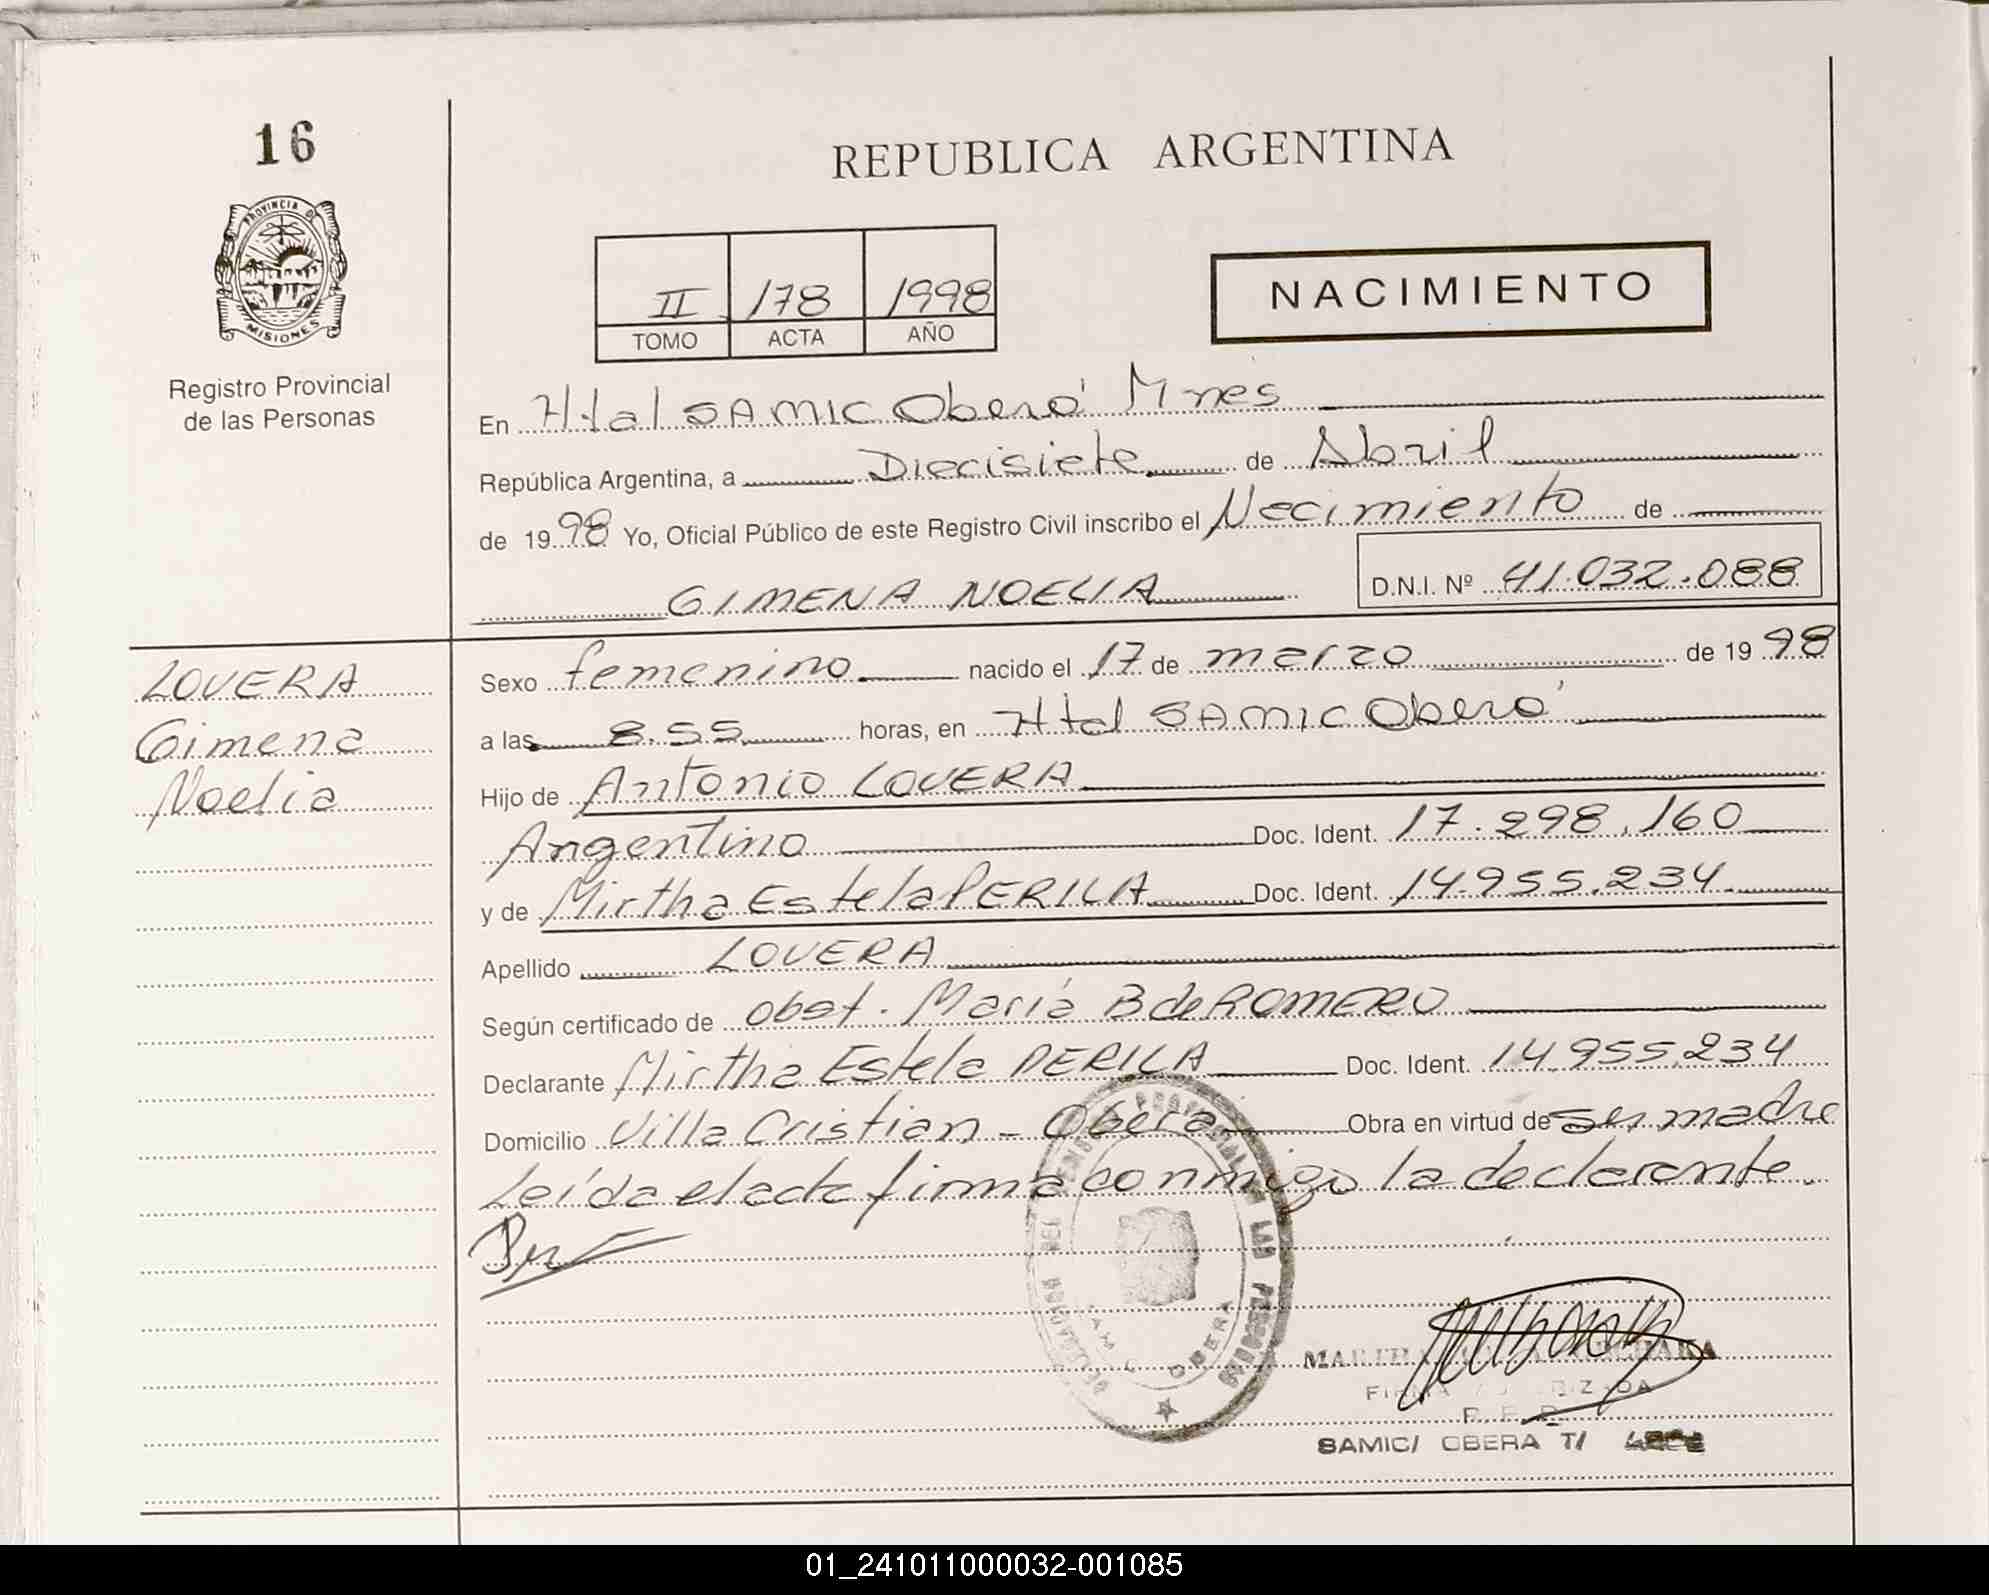 16
REPUBLICA ARGENTINA
PROVINCIA DE
MISIONES
Registro Provincial
de las Personas
II 178 1998
TOMO ACTA AÑO
NACIMIENTO
En Htal SAMIC Oberá Mnes
República Argentina, a Diecisiete de Abril
de 1998 Yo, Oficial Público de este Registro Civil inscribo el Nacimiento de
GIMENA NOELIA D.N.I. Nº 41.032.088
LOVERA
Gimena
Noelia
Sexo femenino nacido el 17 de marzo de 1998
a las 8.55 horas, en Htal SAMIC Oberá
Hijo de Antonio LOVERA
Argentino Doc. Ident. 17.298.160
y de Mirtha Estela PERILA Doc. Ident. 14.955.234
Apellido LOVERA
Según certificado de obst. María B de ROMERO
Declarante Mirtha Estela PERILA Doc. Ident. 14.955.234
Domicilio Villa Cristian - Oberá Obra en virtud de ser madre
Leída el acta firma conmigo la declarante.
LAS PERSONAS
OBERA
FIRMA AUTORIZADA
SAMIC/ OBERA T/
01_241011000032-001085